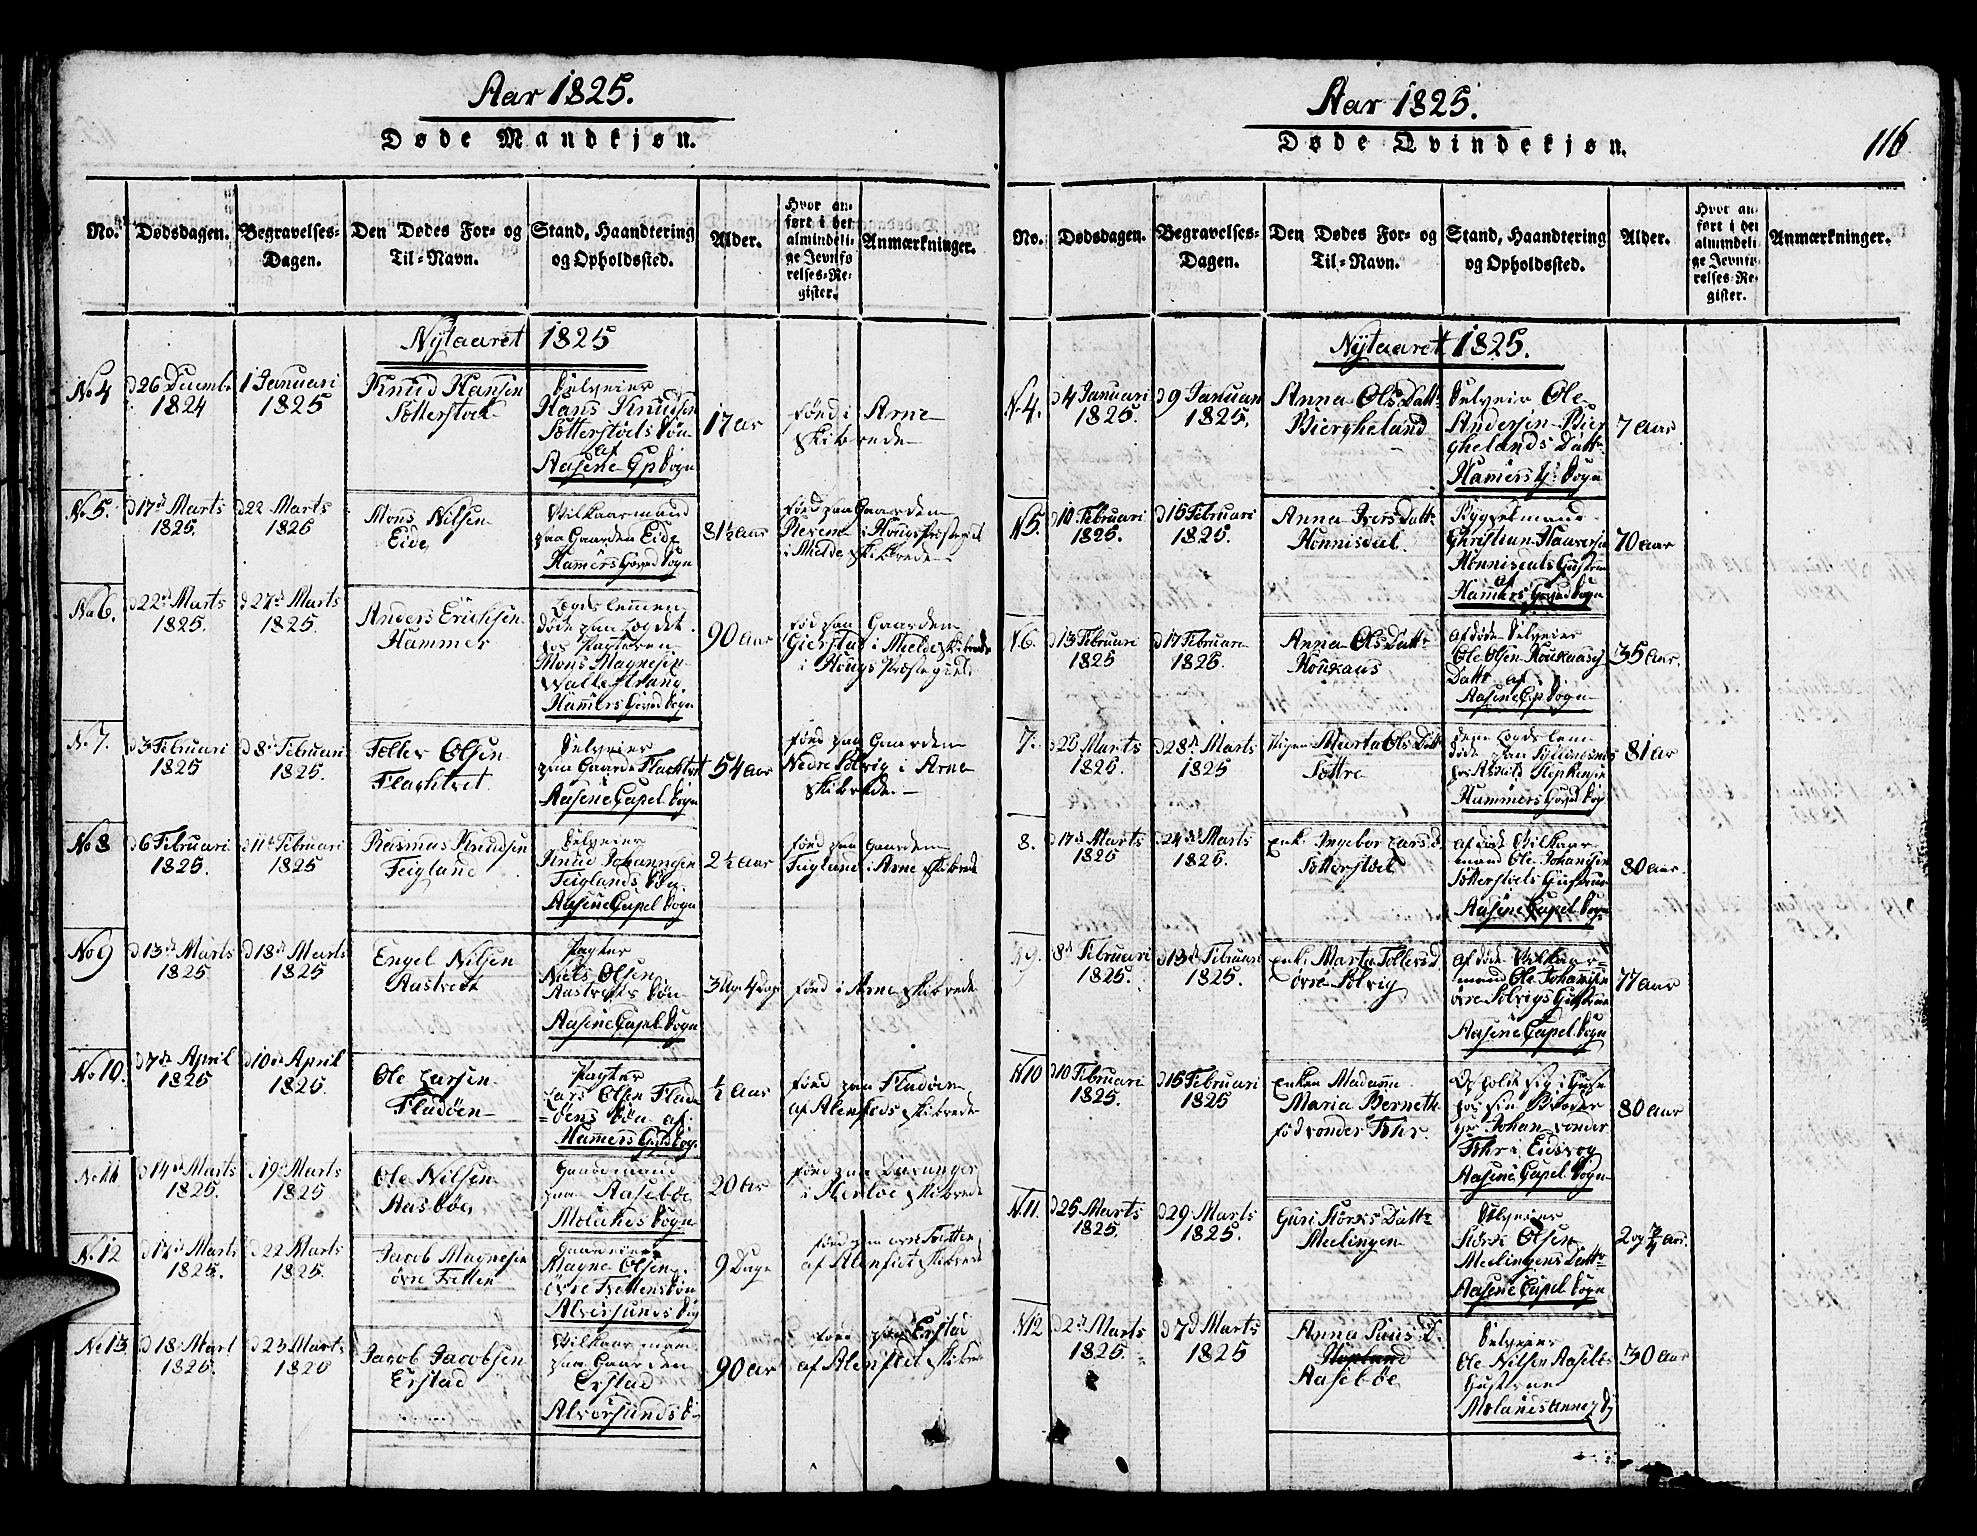 Aar 1825.
Døde Mandkjøn.
No.
Dødsdagen.
Begravelses-
Dagen.
Den Dødes For- og
Til-Navn.
Stand, Haandtering
og Opholdssted.
Alder.
Hvor an-
ført i det
almindeli-
ge Jevnfø-
relses-Re-
gister.
Anmærkninger.
Nytaaret 1825
No 4
d 26 Decembr
1824
1 Januari
1825
Knud Hansen
Sotterstoel
Selveier
Hans Knudsen
Sotterstoels Søn
af
Aasene Cp Sogn
17 ar
fønd i Arne
skibrede
No 5.
d 17d Marts
1825.
d 22 Marts
1825
Mons Nilsen
Eide
Vilkaarmand
paa Gaarden Eide
Hamers Hoved Sogn
81½ aar
fønd paa Gaarden
i Hougs Præstegield
i Mielde Skibrede
No 6.
d 22d Marts
1825.
d 27d Marts
1825.
Anders Erichsen
Hammer
Logdslemen
døde paa Logdet
hos Pagteren
Mons Magnesen
Hamers Hoved Sogn
90 aar
fød paa Gaarden
Gierstad i Mielde skibrede
i Hougs Præstegield
No 7.
d 3 Februari
1825
d 8d Februari
1825.
Toller Olsen
Flachtvet
Selveier
paa Gaarde Flachtvet
i
Aasene Capel Sogn
54 aar
fønd paa Gaarden
Nedre Solvig i Arne
skibrede
No 8
d 6 Februari
1825.
d 11d Februari
1825
Rasmus Knudsen
Feigland
Selveier
Knud Johannsen
Feiglands Søn
Aasene Capel Sogn
2½ aar
fønd paa Gaarden
Feigland i Arne skibrede
No 9
d 13d Marts
1825
d 18d Marts
1825
Engel Nilsen
Aastvedt
Pagter
Niels Olsen
Aastvets Søn
Aasene Capel Sogn
3 Uge 4 Dage
fønd i Arne skibrede
No 10.
d 7d April
1825
d 10d April
1825.
Ole Larsen
Fladøen
Pagter
Lars Olsen Flad
=øens Søn af
½ aar
fønd paa Fladøen
af Alenfeds skibrede
No 11
d 14d Marts
1825.
d 19d Marts
1825
Ole Nilsen
Aasbøe
Gaardmand
paa Aasebøe
20 ar
fønd paa
i skibrede
N. 12
d 17d Marts
1825.
d 22 Marts
1825.
Jacob Magnesen
øvre Fretten
Magne Olsen
øvre Frettens Søn
Alversunds Sog
9 Dage
fønd paa øvre Fretten
af Alenfiet skibrede
No 13
d 18. Mart
1825.
d 23 Marts
1825
Jacob Jacobsen
Erstad
Vilkaarmand
paa Gaarden
Erstad
Alversunds S
90 aar
fønd paa Erstad
af Alenfiet skibre
Aar 1825.
Døde Qvindekjøn.
116
No.
Dødsdagen.
Begravelses-
Dagen.
Den Dødes For- og
Til-Navn.
Stand, Haandtering
og Opholdssted.
Alder.
Hvor an-
ført i det
almindeli-
ge Jevnfø-
relses-Re-
gister.
Anmærkninger.
Nytaaret 1825.
N 4.
d 4 Januari
1825.
d 9 Januari
1825.
Anna Ols Datt
Biergheland
Selveier Ole
Andersen Bier
ghelands Datt
Hamers H. Sogn
7 aar
N 5.
d 10 Februari
1825.
d 15 Februari
1825.
Anna Ivers Datt
Honnisdal
Christian Haversen
Honnisdals Hustrue
af
Hamers Hoved Sogn
70 aar
N 6.
d 13 Februari
1825
d 17 Februari
1825.
Anna Ols Datt
Houkaas
af døde Selveier
Ole Olsen Houkaas
Datt af
Aasene Cp Sogn
35 aar.
7.
d 20 Marts
1825.
d 28d Marts
1825
Pigen Marta Ols Datt
Tøttre
Hammers Hoved Sog
81 ar
8.
d 17d Marts
1825
d 24d Marts
1825.
Enk. Ingebor Lars D.
Sotterstoel
af død Vilkaar
mand Ole Johansen
Sotterstoels Hustrue
Aasene Capel Sogn
80 aar
N 9.
8d Februari
1825.
d 13d Februari
1825.
Enk. Marta Tollers D.
øvre Solvig
af døde Vilkaar=
mand Ole Johansen
øvre Solvigs Hustrue
Aasene Capel Sogn
77 aar
N 10
d 10 Februari
1825.
d 15 Februari
1825
Enken Madame
Maria Berneth
fød vonder Fehr.
Opholdt sig i Huse
hos sin Broder
Hr Johan vonder
Fehr i Eidsvog
Aasene Capel Sogn
80 aar
N. 11.
d 25 Marts
1825.
d 29 Marts
1825.
Guri Størks Datt
Meelingen
Selveier
Størk Olsen
Meelingens Datt
Aasene Capel Sogn
2 og ¾ aar.
N 12
d 2d Marts
1825.
d 7d Marts
1825
Anna Paus D.
Hopland
Aasebøe
Selveier
Ole Nilsen Aasebøe
Hustrue
30 aar